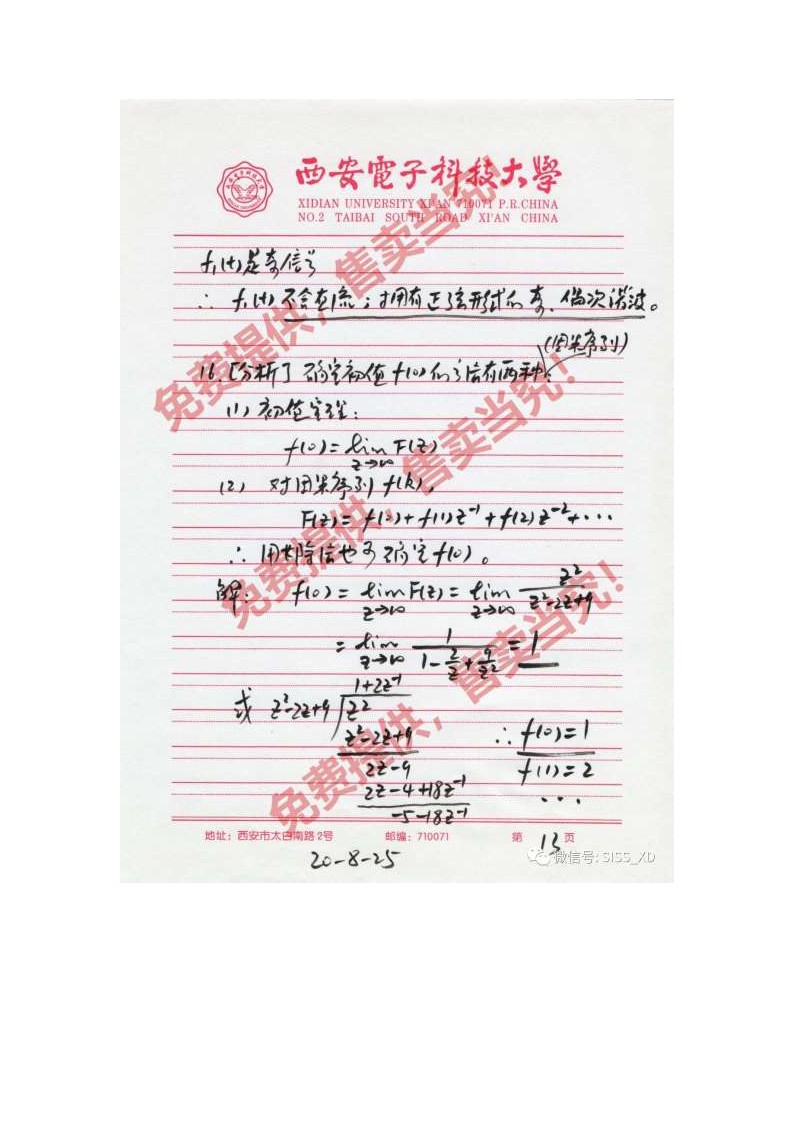 西安電子科技大學
XIDIAN UNIVERSITY XI'AN 710071 P.R.CHINA
NO.2 TAIBAI SOUTH ROAD XI'AN CHINA
f₁(t)是奇信号
∴ f₁(t)不含直流；拥有正弦形式的奇、偶次谐波。
(因果序列)
16.[分析] 确定初值f(0)的方法有两种:
(1) 初值定理:
f(0)=lim F(z)
z→∞
(2) 对因果序列f(k),
F(z)=f(0)+f(1)z⁻¹+f(2)z⁻²+···
∴ 用长除法也可确定f(0)。
解: f(0)=lim F(z)=lim z²/(z²-2z+9)
z→∞ z→∞
=lim 1/(1-2/z+9/z²)=1
z→∞
1+2z⁻¹
或 z²-2z+9 z²
z²-2z+9 ∴ f(0)=1
2z-9 f(1)=2
2z-4+18z⁻¹ ···
-5-18z⁻¹
地址：西安市太白南路2号 邮编：710071 第 13 页
20-8-25
微信号: SISS_XD
免费提供，售卖当究！
免费提供，售卖当究！
免费提供，售卖当究！